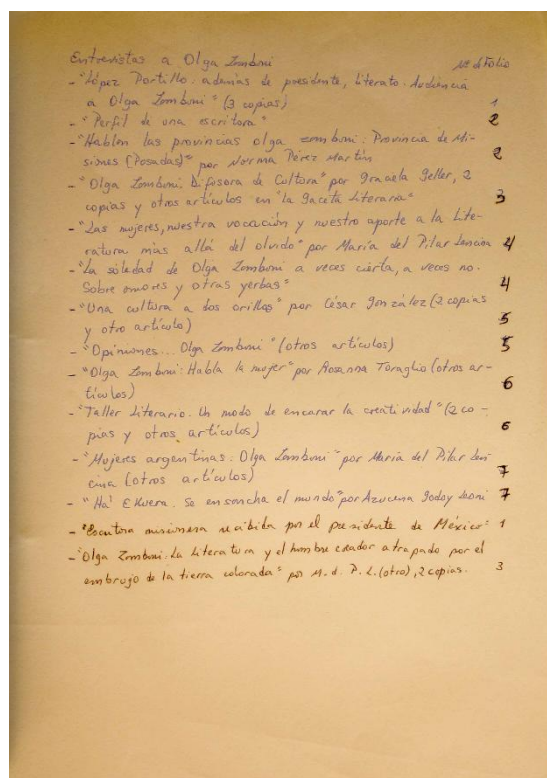 Entrevistas a Olga Zamboni Nº de Folio
- "López Portillo: además de presidente, literato. Audiencia
a Olga Zamboni" (3 copias) 1
- "Perfil de una escritora" 2
- "Hablan las provincias olga zamboni: Provincia de Mi-
siones (Posadas)" por Norma Pérez Martín 2
- "Olga Zamboni: Difusora de Cultura" por Graciela Geller, 2
copias y otros artículos en "la Gaceta Literaria" 3
- "Las mujeres, nuestra vocación y nuestro aporte a la Lite-
ratura más allá del olvido" por María del Pilar Lencina 4
- "La soledad de Olga Zamboni a veces cierta, a veces no.
Sobre amores y otras yerbas" 4
- "Una cultura a dos orillas" por César González (2 copias
y otro artículo) 5
- "Opiniones... Olga Zamboni" (otros artículos) 5
- "Olga Zamboni: Habla la mujer" por Rosanna Toraglio (otros ar-
tículos) 6
- "Taller Literario. Un modo de encarar la creatividad" (2 co-
pias y otros artículos) 6
- "Mujeres argentinas: Olga Zamboni" por María del Pilar Len-
cina (otros artículos) 7
- "Ha' E Kuera. Se ensancha el mundo" por Azucena Godoy 7
- "Escritora misionera recibida por el presidente de México" 1
- "Olga Zamboni: La Literatura y el hombre creador atrapado por el
embrujo de la tierra colorada" por M. d. P. L. (otro), 2 copias. 3